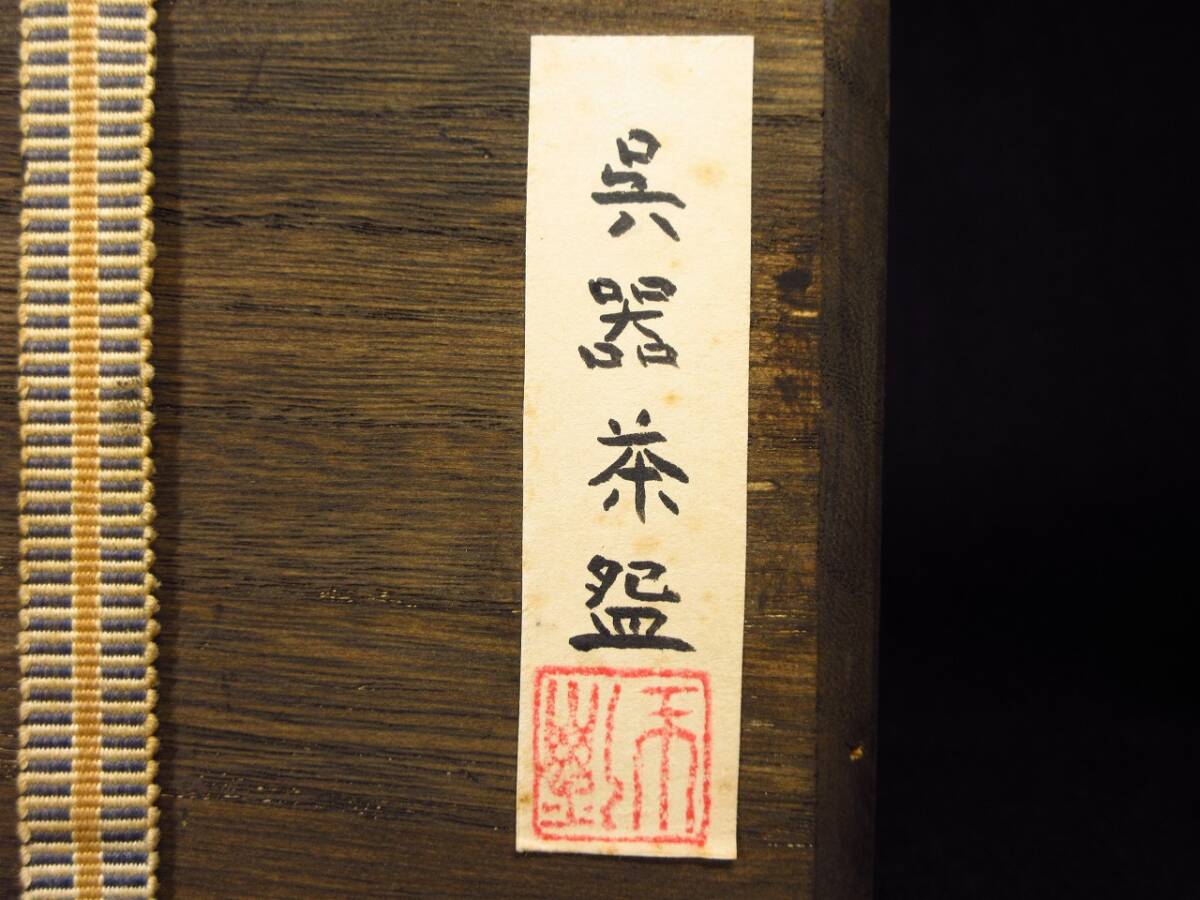 呉器茶盌